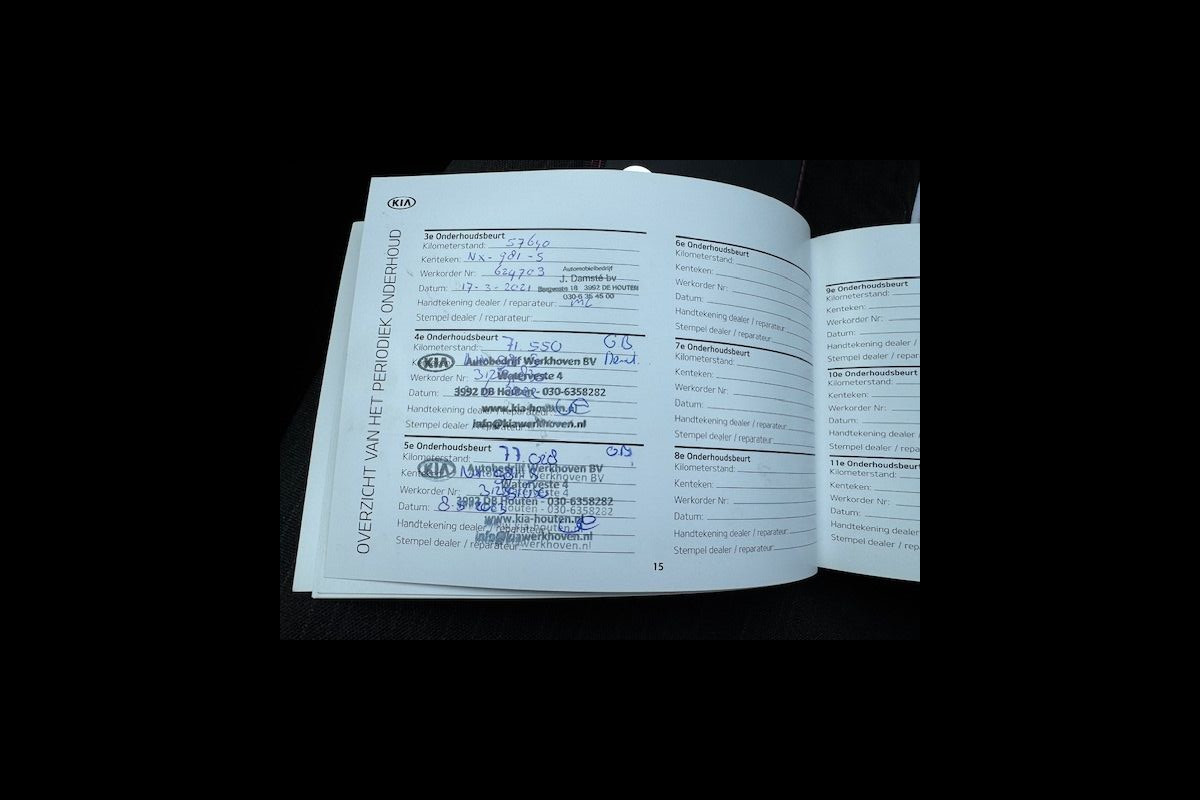 KIA
OVERZICHT VAN HET PERIODIEK ONDERHOUD
3e Onderhoudsbeurt
Kilometerstand: 57640
Kenteken: NX-981-S
Werkorder Nr: 624703
Datum: 17-3-2021
Handtekening dealer / reparateur:
Stempel dealer / reparateur:
Automobielbedrijf
J. Damsté bv
18 3992 DE HOUTEN
030-6 35 45 00
4e Onderhoudsbeurt
Kilometerstand: 71.550 GB
Werkorder Nr:
Datum:
Handtekening dealer / reparateur
Stempel dealer / reparateur
KIA Autobedrijf Werkhoven BV
Waterveste 4
3992 DB Houten - 030-6358282
www.kia-houten.nl
info@kiawerkhoven.nl
5e Onderhoudsbeurt
Kilometerstand: 77.028 GB
Kenteken:
Werkorder Nr:
Datum:
Handtekening dealer / reparateur
Stempel dealer / reparateur
KIA Autobedrijf Werkhoven BV
Waterveste 4
3992 DB Houten - 030-6358282
www.kia-houten.nl
info@kiawerkhoven.nl
6e Onderhoudsbeurt
Kilometerstand:
Kenteken:
Werkorder Nr:
Datum:
Handtekening dealer / reparateur
Stempel dealer / reparateur
7e Onderhoudsbeurt
Kilometerstand:
Kenteken:
Werkorder Nr:
Datum:
Handtekening dealer / reparateur
Stempel dealer / reparateur
8e Onderhoudsbeurt
Kilometerstand:
Kenteken:
Werkorder Nr:
Datum:
Handtekening dealer / reparateur
Stempel dealer / reparateur
15
9e Onderhoudsbeurt
Kilometerstand:
Kenteken:
Werkorder Nr:
Datum:
Handtekening dealer /
Stempel dealer / repar
10e Onderhoudsbeurt
Kilometerstand:
Kenteken:
Werkorder Nr:
Datum:
Handtekening dealer /
Stempel dealer / rep
11e Onderhoudsbeurt
Kilometerstand:
Kenteken:
Werkorder Nr:
Datum:
Handtekening dealer /
Stempel dealer / rep